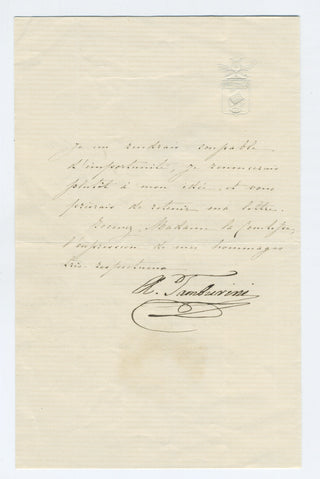 je me rendrais coupable
d'importunité, je renoncerais
plutôt à mon idée et vous
prierais de retenir ma lettre.
Recevez, Madame la Comtesse,
l'expression de mes hommages
très respectueux
A. Tamburini